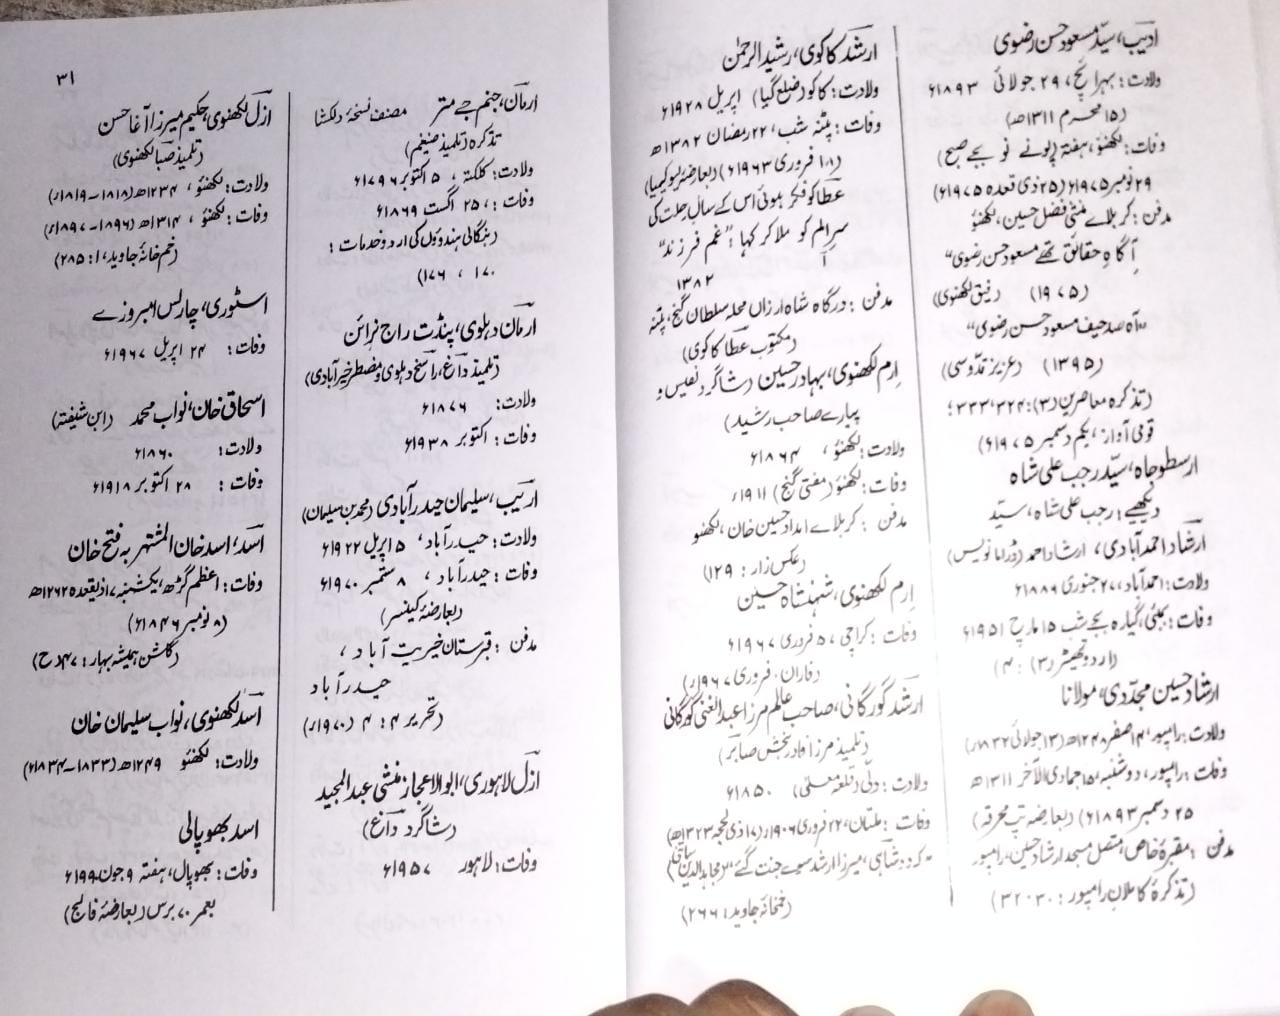 ادیب، سیّد مسعود حسن رضوی
ولادت: بہرائچ، ۲۹ جولائی ۱۸۹۳ء
(۱۵ محرم ۱۳۱۱ھ)
وفات: لکھنؤ، ہفتہ (پونے نو بجے صبح)
۲۹ نومبر ۱۹۷۵ء (۲۵ ذی قعدہ ۱۹۷۵ء)
مدفن: کربلاے منشی فضل حسین، لکھنؤ
آگاہِ حقائق تھے مسعود حسن رضوی"
(۱۹۷۵) رفیق لکھنوی)
"آہ صد حیف مسعود حسن رضوی"
(۱۳۹۵) (عزیز قدّوسی)
(تذکرہ معاصرین (۳): ۳۲۴، ۳۳۳؛
قومی آواز، یکم دسمبر ۱۹۷۵ء)
ارسطوجاہ، سیّد رجب علی شاہ
دیکھیے: رجب علی شاہ، سیّد
ارشاد احمد آبادی، ارشاد احمد (ڈراما نویس)
ولادت: احمد آباد، ۲۷ جنوری ۱۸۸۶ء
وفات: بمبئی، گیارہ بجے شب ۱۵ مارچ ۱۹۵۱ء
(اردو تھیٹر (۳): ۴)
ارشاد حسین مجدّدی، مولانا
ولادت: رامپور، ۱۴ صفر ۱۲۴۸ھ (۱۳ جولائی ۱۸۳۲ء)
وفات: رامپور، دوشنبہ، ۱۵ جمادی الآخر ۱۳۱۱ھ
۲۵ دسمبر ۱۸۹۳ء) (بعارضہ تپ محرقہ)
مدفن: مقبرۂ خاص، متصل مسجد ارشاد حسین، رامپور
(تذکرۂ کاملان رامپور: ۳۰-۳۲)
ارشد کاکوی، رشید الرحمٰن
ولادت: کاکو (ضلع گیا) اپریل ۱۹۲۸ء
وفات: پٹنہ شب، ۲۲ رمضان ۱۳۸۲ھ
(۱۸ فروری ۱۹۶۳ء) (بعارضہ لیوکیمیا)
عطا کو فکر ہوئی اس کے سالِ رحلت کی
سرِ الم کو ملا کر کہا: "غمِ فرزند"
۱۳۸۲
مدفن: درگاہ شاہ ارزاں محلہ سلطان گنج، پٹنہ
(مکتوب عطا کاکوی)
ارم لکھنوی، بہادر حسین (شاگرد نفیس و
پیارے صاحب رشید)
ولادت: لکھنؤ، ۱۸۶۴ء
وفات: لکھنؤ (مفتی گنج) ۱۹۱۱ء
مدفن: کربلاے امداد حسین خان، لکھنؤ
(عکس زار: ۱۲۹)
ارم لکھنوی، شہنشاہ حسین
وفات: کراچی، ۵ فروری ۱۹۶۷ء
(فاران، فروری ۱۹۶۷ء)
ارشد گورگانی، صاحب عالم مرزا عبدالغنی گورگانی
(تلمیذ مرزا قادر بخش صابر)
ولادت: دلّی (قلعہ معلی) ۱۸۵۰ء
وفات: ملتان، ۲۲ فروری ۱۹۰۶ء (۱۷ ذی الحجہ ۱۳۲۳ھ)
کہہ دو شاہی، میرزا ارشد سوے جنت گئے
(خمخانۂ جاوید ۱: ۲۶۶)
۳۱
ارمان، جنم جے متر مصنف نسخۂ دلکشا
تذکرہ (تلمیذ ضیغم)
ولادت: کلکتہ، ۵ اکتوبر ۱۷۹۶ء
وفات: ، ۲۵ اگست ۱۸۶۹ء
(بنگالی ہندوؤں کی اردو خدمات:
۱۷۰، ۱۷۶)
ارمان دہلوی، پنڈت راج نرائن
(تلمیذ داغ، راسخ دہلوی و مضطر خیرآبادی)
ولادت: ۱۸۷۶ء
وفات: اکتوبر ۱۹۳۸ء
اریب، سلیمان حیدرآبادی (محمد بن سلیمان)
ولادت: حیدرآباد، ۵ اپریل ۱۹۲۲ء
وفات: حیدرآباد، ۸ ستمبر ۱۹۷۰ء
(بعارضۂ کینسر)
مدفن: قبرستان خیریت آباد،
حیدرآباد
(تحریر ۴: ۴ (۱۹۷۰ء)
ازل لاہوری، ابوالاعجاز، منشی عبدالمجید
(شاگرد داغ)
وفات: لاہور ۱۹۵۷ء
ازل لکھنوی، حکیم میرزا آغا حسن
(تلمیذ صبا لکھنوی)
ولادت: لکھنؤ، ۱۲۳۴ھ (۱۸۱۸-۱۸۱۹ء)
وفات: لکھنؤ، ۱۳۱۴ھ (۱۸۹۶-۱۸۹۷ء)
(خم خانۂ جاوید، ۱: ۲۸۵)
اسٹوری، چارلس امبروزے
وفات: ۲۴ اپریل ۱۹۶۷ء
اسحاق خان، نواب محمد (ابن شیفتہ)
ولادت: ۱۸۶۰ء
وفات: ۲۸ اکتوبر ۱۹۱۸ء
اسد، اسد خان المشتہر بہ فتح خان
وفات: اعظم گڑھ، یکشنبہ ۱۷ ذیقعدہ ۱۲۶۲ھ
(۸ نومبر ۱۸۴۶ء)
(گلشن ہمیشہ بہار: ۴۷ ح)
اسد لکھنوی، نواب سلیمان خان
ولادت: لکھنؤ ۱۲۴۹ھ (۱۸۳۳-۱۸۳۴ء)
اسد بھوپالی
وفات: بھوپال، ہفتہ ۹ جون ۱۹۹۰ء
بعمر ۷۰ برس (بعارضۂ فالج)